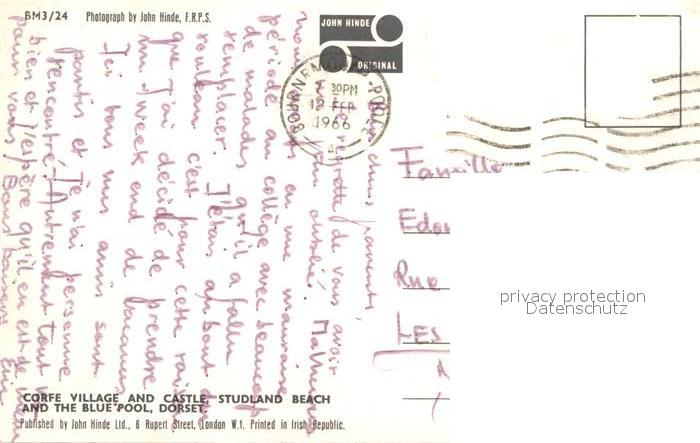 BM3/24 Photograph by John Hinde, F.R.P.S.
JOHN HINDE
ORIGINAL
BOURNEMOUTH-POOLE
30PM
12 FEB
1966
A
chers parents,
regrette de vous avoir
oublié. Malheureusement
nous en une mauvaise
période au collège avec beaucoup
de malades qu'il a fallu
remplacer. J'étais au bout du
rouleau c'est pour cette raison
que j'ai décidé de prendre
un week end de vacances
Ici tous mes amis sont
partis et je n'ai personne
rencontré. Autrement tout va
bien et j'espère qu'il en est de même
pour vous. Bons baisers
Famille
Edou
Rue
LES
CORFE VILLAGE AND CASTLE, STUDLAND BEACH
AND THE BLUE POOL, DORSET.
Published by John Hinde Ltd., 6 Rupert Street, London W.1. Printed in Irish Republic.
privacy protection
Datenschutz